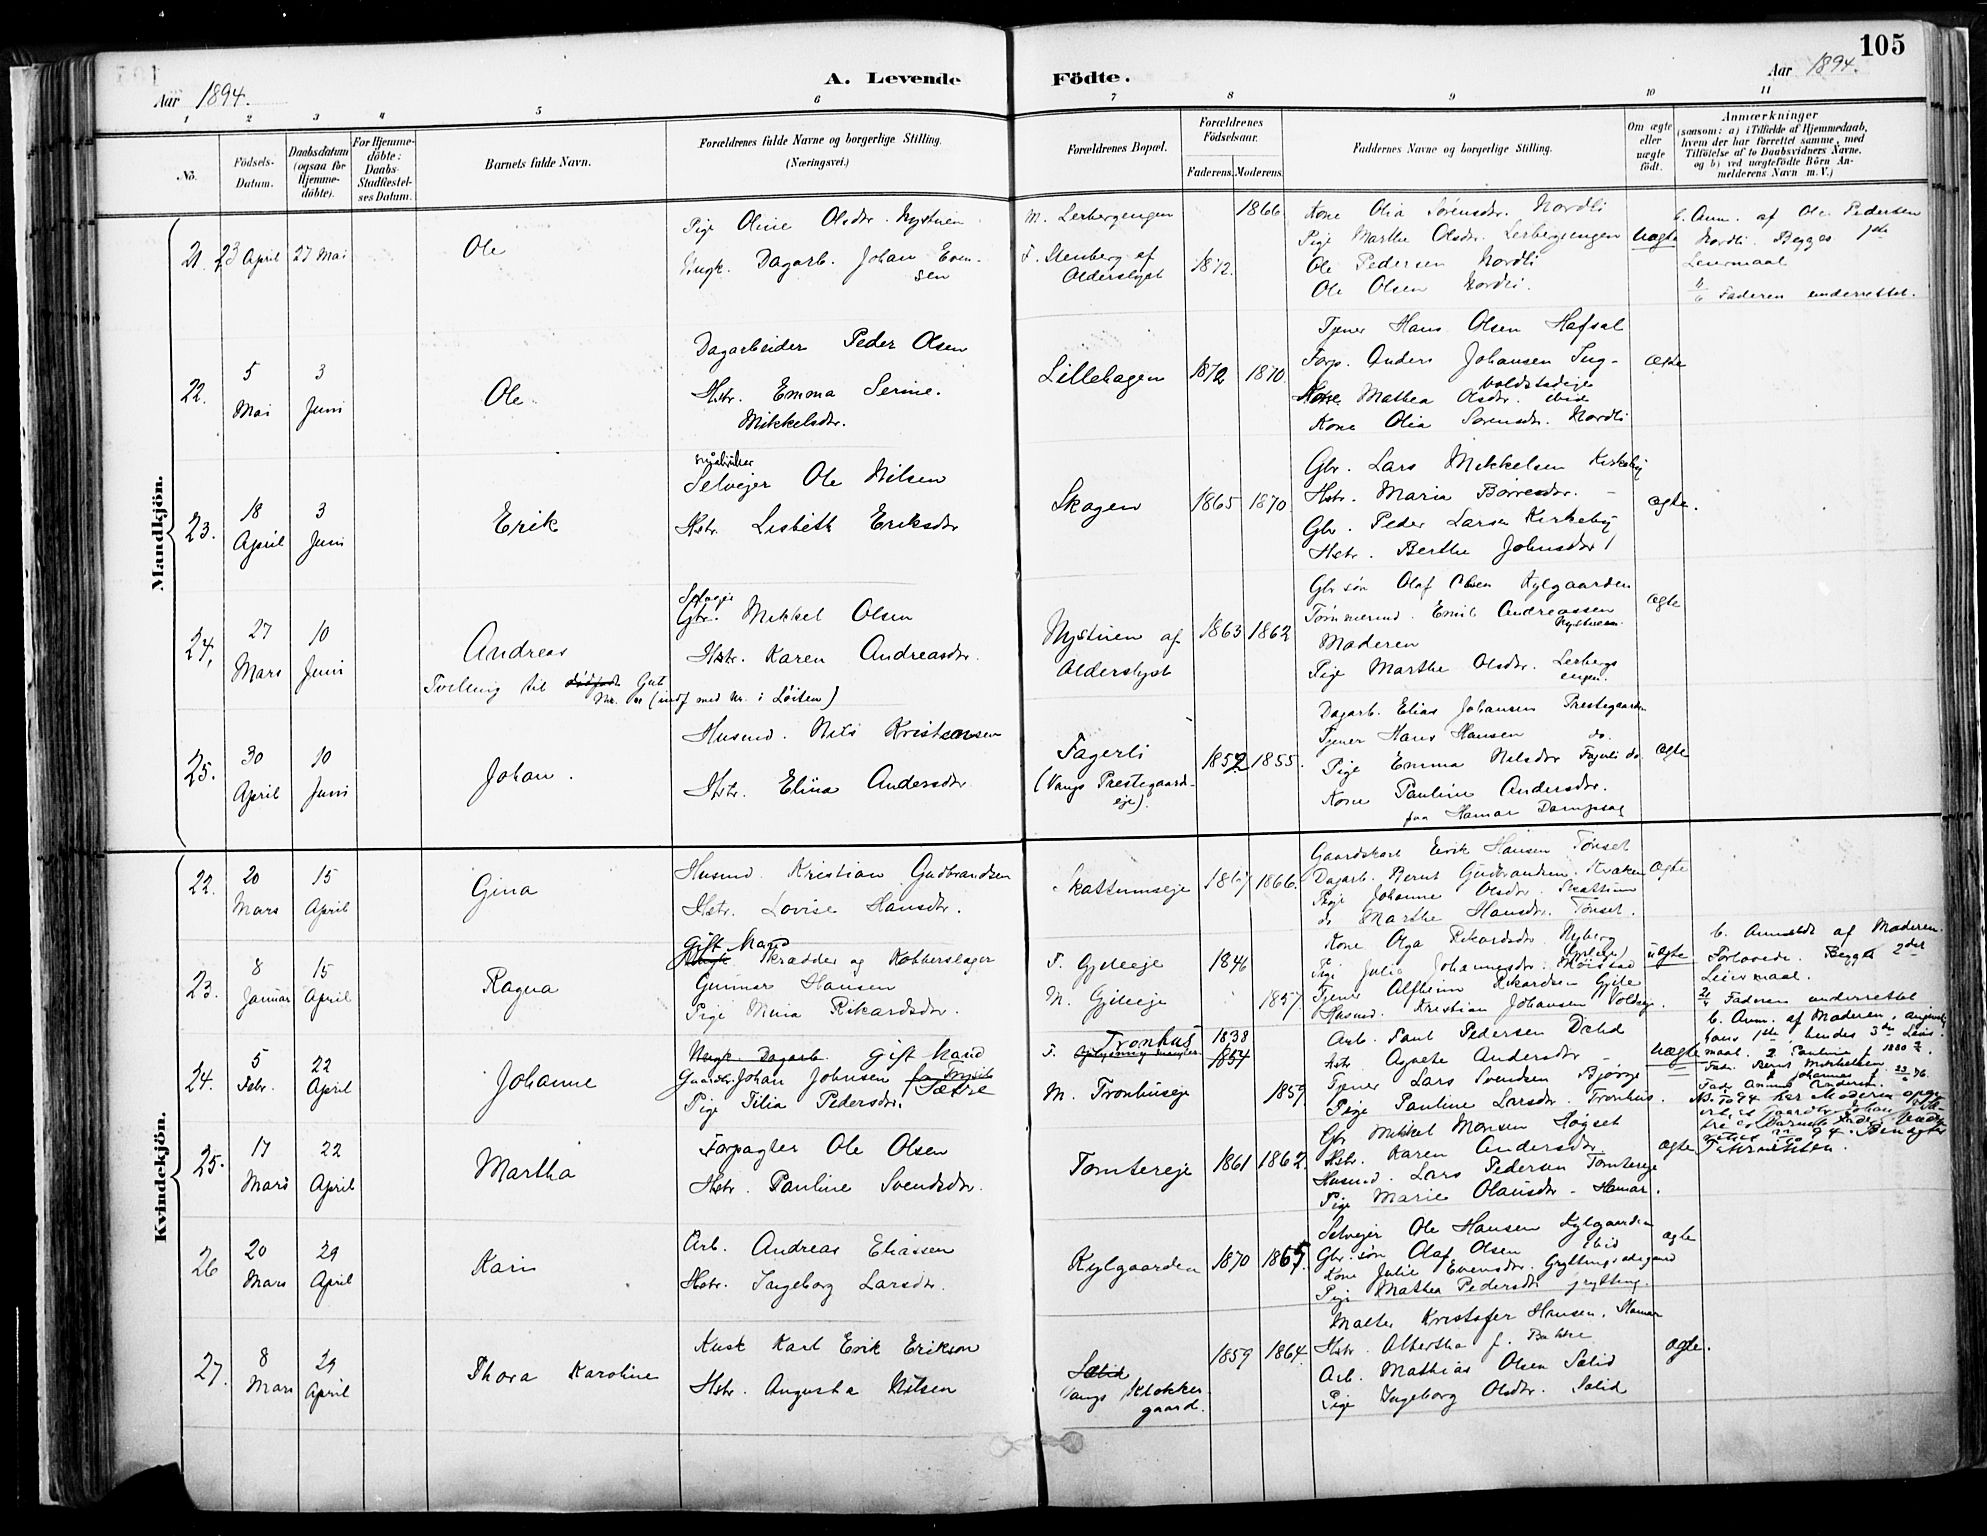 105
Aar 1894.
A. Levende Födte.
Aar 1894.
1 2 3 4 5 6 7 8 9 10 11
No.
Födsels-Datum.
Daabsdatum (ogsaa for Hjemmedöbte).
For Hjemmedöbte: Daabs-Stadfæstelses Datum.
Barnets fulde Navn.
Forældrenes fulde Navne og borgerlige Stilling. (Næringsvei.)
Forældrenes Bopæl.
Forældrenes Födselsaar.
Faderens. Moderens.
Faddernes Navne og borgerlige Stilling.
Om ægte eller uægte födt.
Anmærkninger
(saasom: a) i Tilfælde af Hjemmedaab, hvem der har forrettet samme, med Tilföielse af to Daabsvidners Navne, og b) ved uægtefödte Börn Anmelderens Navn m. V.)
Mandkjön.
21. 23 April 27 Mai
Ole
Pige Oline Olsdr. Nystuen
Ungk. Dagarb. Johan Evensen
M. Lerbergengen
F. Stenberg af Alderslyst
1872. 1866
Kone Olia Sörensdr. Nordli
Pige Marthe Olsdr. Lerbergengen
Ole Pedersen Nordli
Ole Olsen Nordli.
Uægte
b. Anm. af Ole Pedersen
Nordli. Begges 1ste
Leiermaal
Faderen underrettet.
22. 5 Mai 3 Juni
Ole
Dagarbeider Peder Olsen
Hstr. Emma Serine Mikkelsdr.
Lillehagen
1872 1870.
Tjener Hans Olsen Hafsal
Forp. Anders Johansen Ingvoldstadeje
Kone Mathea Olsdr. ibid
Kone Olia Sørensdr. Nordli
Ægte
23. 18 April 3 Juni
Erik
Selveier Ole Nilsen
Hstr. Lisbeth Eriksdr
Skagen
1865 1870
Gbr. Lars Mikkelsen Kirkeby
Hstr. Maria Börresdr. -
Gbr. Peder Larsen Kirkeby
Hstr. Berthe Johnsdr
Ægte.
24. 27 Mars 10 Juni
Andreas
Tvilling til Gut
Nr. (indf med Nr. i Löiten)
Selveje
Gbr. Mikkel Olsen
Hstr. Karen Andreasdr.
Nystuen af Alderslyst
1863 1862
Gbr søn Olaf Olsen Kylgaarden
Tømmermd. Emil Andreassen Nystuen
Moderen
Pige Marthe Olsdr. Lerbergsengen.
Ægte
25. 30 April 10 Juni
Johan.
Husmd. Nils Kristensen
Hstr. Elina Andersdr.
Fagerli
(Vangs Prestegaardeje).
1852 1855.
Dagarb. Elias Johansen Prestegaarden
Tjener Hans Hansen do.
Pige Emma Nilsdr Fagerli do
Kone Pauline Andersdr.
paa Hamar Dampsag
Ægte
Kvindekjön.
22. 20 Mars 15 April
Gina
Husmd. Kristian Gudbrandsen
Hstr. Lovise Hansdr.
Skattumseje
1867 1866.
Gaardskarl Erik Hansen Tønset
Dagarb. Bernt Gudbrandsen. Kvaken
Pige Johanne Olsdr. Skattum
do Marthe Hansdr. Tønset.
Ægte
23. 8 Januar 15 April
Ragna
Gift Mand
Skrædder og Kobberslager
Gunnar Hansen
Pige Mina Rikardsdr.
F. Gjileeje
M. Gjileeje
1846 1857.
Kone Olga Rikardsdr. Nyberg
Pige Julie Johannesdr. Höistad
Tjener Alfheim Rikardsen Gjile
Husmd. Kristian Johansen
uægte
b. Anmeldt af Moderen.
Forlovede. Begges 2det
Leiermaal.
Faderen underrettet
24. 5 Febr. 22 April
Johanne
Ungk. Dagarb. Gift Mand
Gaardbr Johan Johnsen Sætre
Pige Tilia Pedersdr.
F. Tronhus
M. Tronhuseje
1838
1854
1859
Arb. Paul Pedersen Dalid
Hstr Agnete Andersdr -
Tjener Lars Svendsen Bjørge
Pige Pauline Larsdr. Tronhus.
Uægte
b. Anm. af Moderen, angivelig
hans 1ste, hendes 3die Leiermaal.
2 Pauline f. 1880
Fadr. Bernt Mikkelsen
Johannes f.
Fadr Anders
25. 17 Mars 22 April
Martha
Forpagter Ole Olsen
Hstr. Pauline Svendsdr.
Tomtereje
1861 1862.
Gbr Mikkel Monsen Høgset
Hstr. Karen Andersdr
Husmd. Lars Pedersen Tomtereje
Pige Marie Olausdr. - Hamar.
Ægte
26 20 Mars 29 April
Karin
Arb. Andreas Eliassen
Hstr. Ingeborg Larsdr.
Kylgaarden
1870 1865
Selveier Ole Hansen Kylgaarden
Gbr. søn Olaf Olsen ibid
Kone Julie Evensdr.
Pige Mathea Pedersdr grytting
Ægte
27. 8 Mars 29 April
Thora Karoline
Kusk Karl Erik Erikson
Hstr. Augusta Nilsen
Sælid
Vangs Klokkergaard.
1859 1864.
Maler Kristofer Hansen. Hamar
Hstr. Albertha f. Bakke
Arb. Mathias Olsen Sælid
Pige Ingeborg Olsdr. Sælid
Ægte.